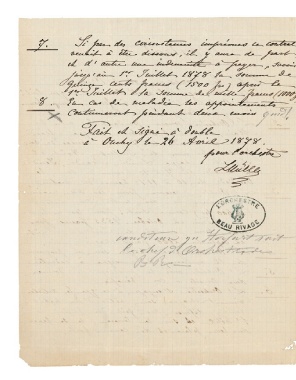 7. Si par des circonstances imprévues le contrat
venait à être dissous, il y aura de part
et d'autre une indemnité à payer, savoir
jusqu'au 1er Juillet 1878 la somme de
quinze cents francs (1500 fr) après le
1er Juillet la somme de mille francs (1000)
8. En cas de maladie les appointements
continueront pendant deux mois
Fait et signé à double
à Ouchy le 26 Avril 1878.
pour l'orchestre
L'ORCHESTRE
BEAU RIVAGE
conditions qu
soit